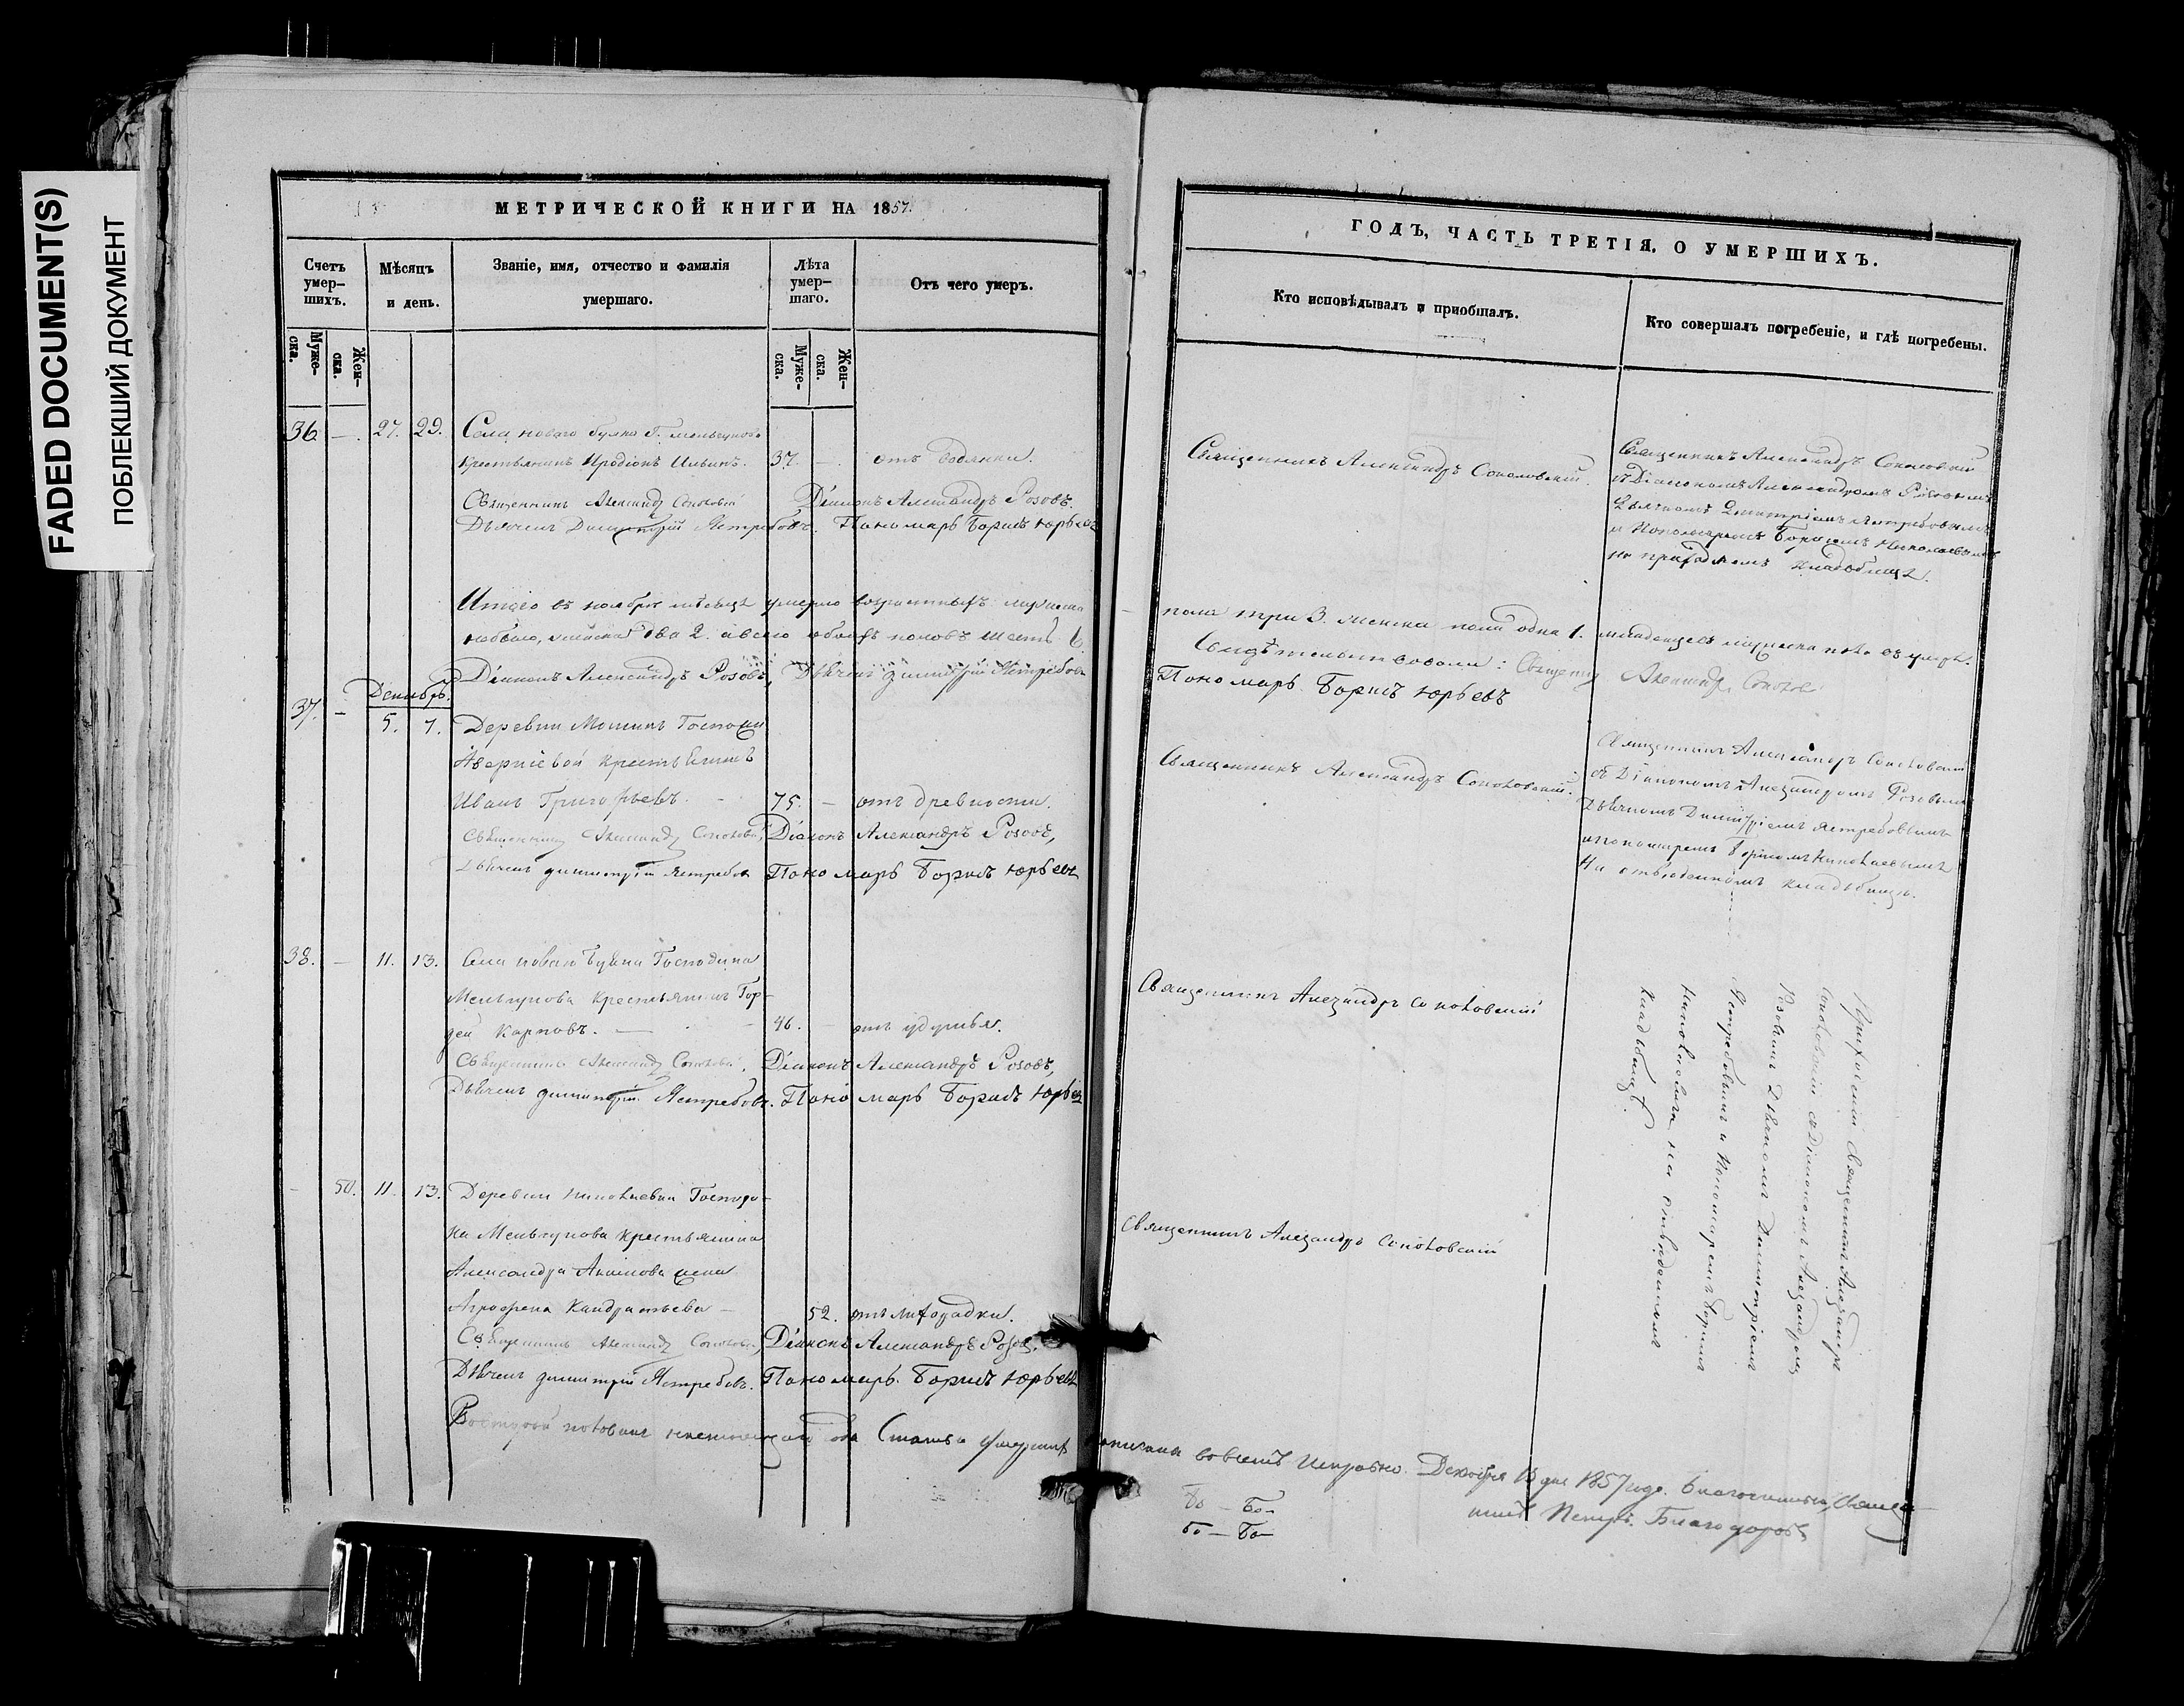 FADED DOCUMENT(S)
ПОБЛЕКШИЙ ДОКУМЕНТ
МЕТРИЧЕСКОЙ КНИГИ НА 1857.
Счетъ умер-шихъ.
Мѣсяцъ и день.
Званіе, имя, отчество и фамилія умершаго.
Лѣта умер-шаго.
Отъ чего умеръ.
Муже-ска.
Жен-ска.
Муже-ска.
Жен-ска.
36 — 27. 29. Села новаго Буяна Г. Мельгунова
крестьянинъ Иродіонъ Ильинъ. 37. — отъ водянки.
Священникъ Александр Соколовскій Діаконъ Александръ Розовъ.
Дьячекъ Димитрій Ястребовъ. Пономарь Борисъ Юрьевъ
Итого въ ноябрѣ мѣсяцѣ умерло возрастныхъ мужеска
два 2. а всего обоихъ половъ шесть 6.
Діаконъ Александръ Розовъ, Дьячекъ Димитрій Ястребовъ
Декабрь.
37. — 5. 7. Деревни Госпожи
крестьянинъ
Иванъ Григорьевъ. — 75. — отъ древности.
Священникъ Александр Соколовскій Діаконъ Александръ Розовъ,
Дьячекъ Димитрій Ястребовъ Пономарь Борисъ Юрьевъ
38. — 11. 13. Села новаго Буяна Господина
Мельгунова крестьянинъ Гор-
дей Карповъ. — 46. — отъ удушья.
Священникъ Александр Соколовскій. Діаконъ Александръ Розовъ,
Дьячекъ Димитрій Ястребовъ. Пономарь Борисъ Юрьевъ
— 50. 11. 13. Деревни Николаевки Господи-
на Мельгунова крестьянина
Александра Акимова жена
Агрофена Кандратьева — 52. отъ лихорадки.
Священникъ Александр Соколовскій Діаконъ Александръ Розовъ.
Дьячекъ Димитрій Ястребовъ. Пономарь Борисъ Юрьевъ
ГОДЪ, ЧАСТЬ ТРЕТІЯ, О УМЕРШИХЪ.
Кто исповѣдывалъ и пріобщалъ.
Кто совершалъ погребеніе, и гдѣ погребены.
Священникъ Александръ Соколовскій.
Священникъ Александръ Соколовскій
съ Діакономъ Александромъ Розовымъ
Дьячкомъ Димитріемъ Ястребовымъ
и Пономаремъ Борисомъ Николаевымъ
на приходскомъ кладбищѣ.
пола три 3. женска пола одна 1. младенцевъ мужеска пола
Свидѣтельствовали: Священникъ Александр Соколов
Пономарь Борисъ Юрьевъ
Священникъ Александръ Соколовскій.
Священникъ Александръ Соколовскій
съ Діакономъ Александромъ Розовымъ
Дьячкомъ Димитріемъ Ястребовымъ
и пономаремъ Борисомъ Николаевымъ
На отведенномъ кладбищѣ.
Священникъ Александръ Соколовскій
Священникъ Александръ Соколовскій
Священникъ Александръ
Соколовскій съ Діакономъ Александромъ
Розовымъ Дьячкомъ Димитріемъ
Ястребовымъ и Пономаремъ Борисомъ
Николаевымъ на отведенномъ
кладбищѣ.
Во второй половинѣ Статьи умершихъ писаны во всемъ Исправно. Декабря 15 дня 1857 года. Благочинный, Священ-
никъ Петръ Благодаровъ